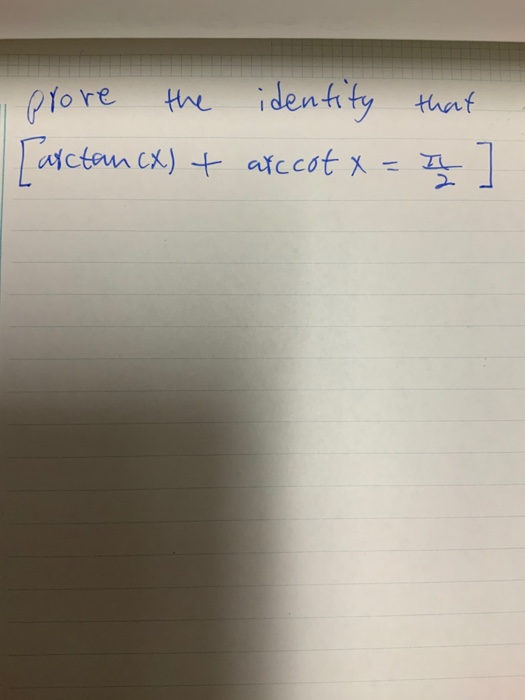 prove the identity that
[arctan(x) + arccot x = π/2]